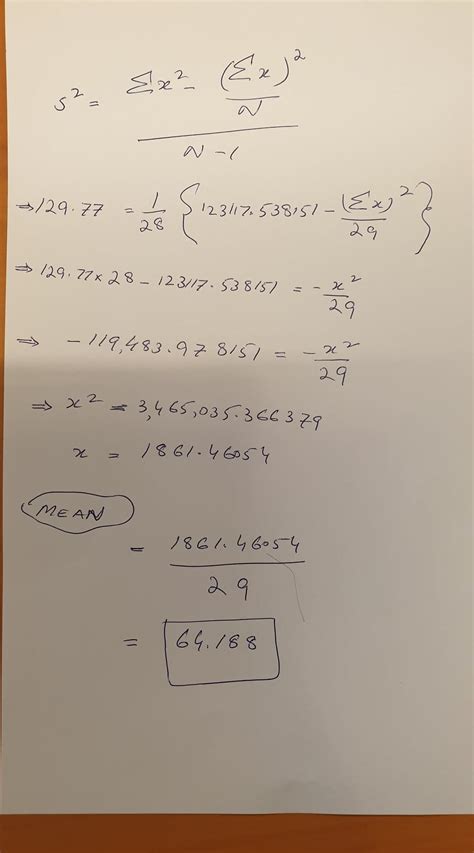 s² = (Σx² - (Σx)²/N) / (N-1)
⇒ 129.77 = 1/28 { 123117.538151 - (Σx)²/29 }
⇒ 129.77 × 28 - 123117.538151 = -x²/29
⇒ -119,483.978151 = -x²/29
⇒ x² = 3,465,035.366379
x = 1861.46054
MEAN
= 1861.46054/29
= 64.188